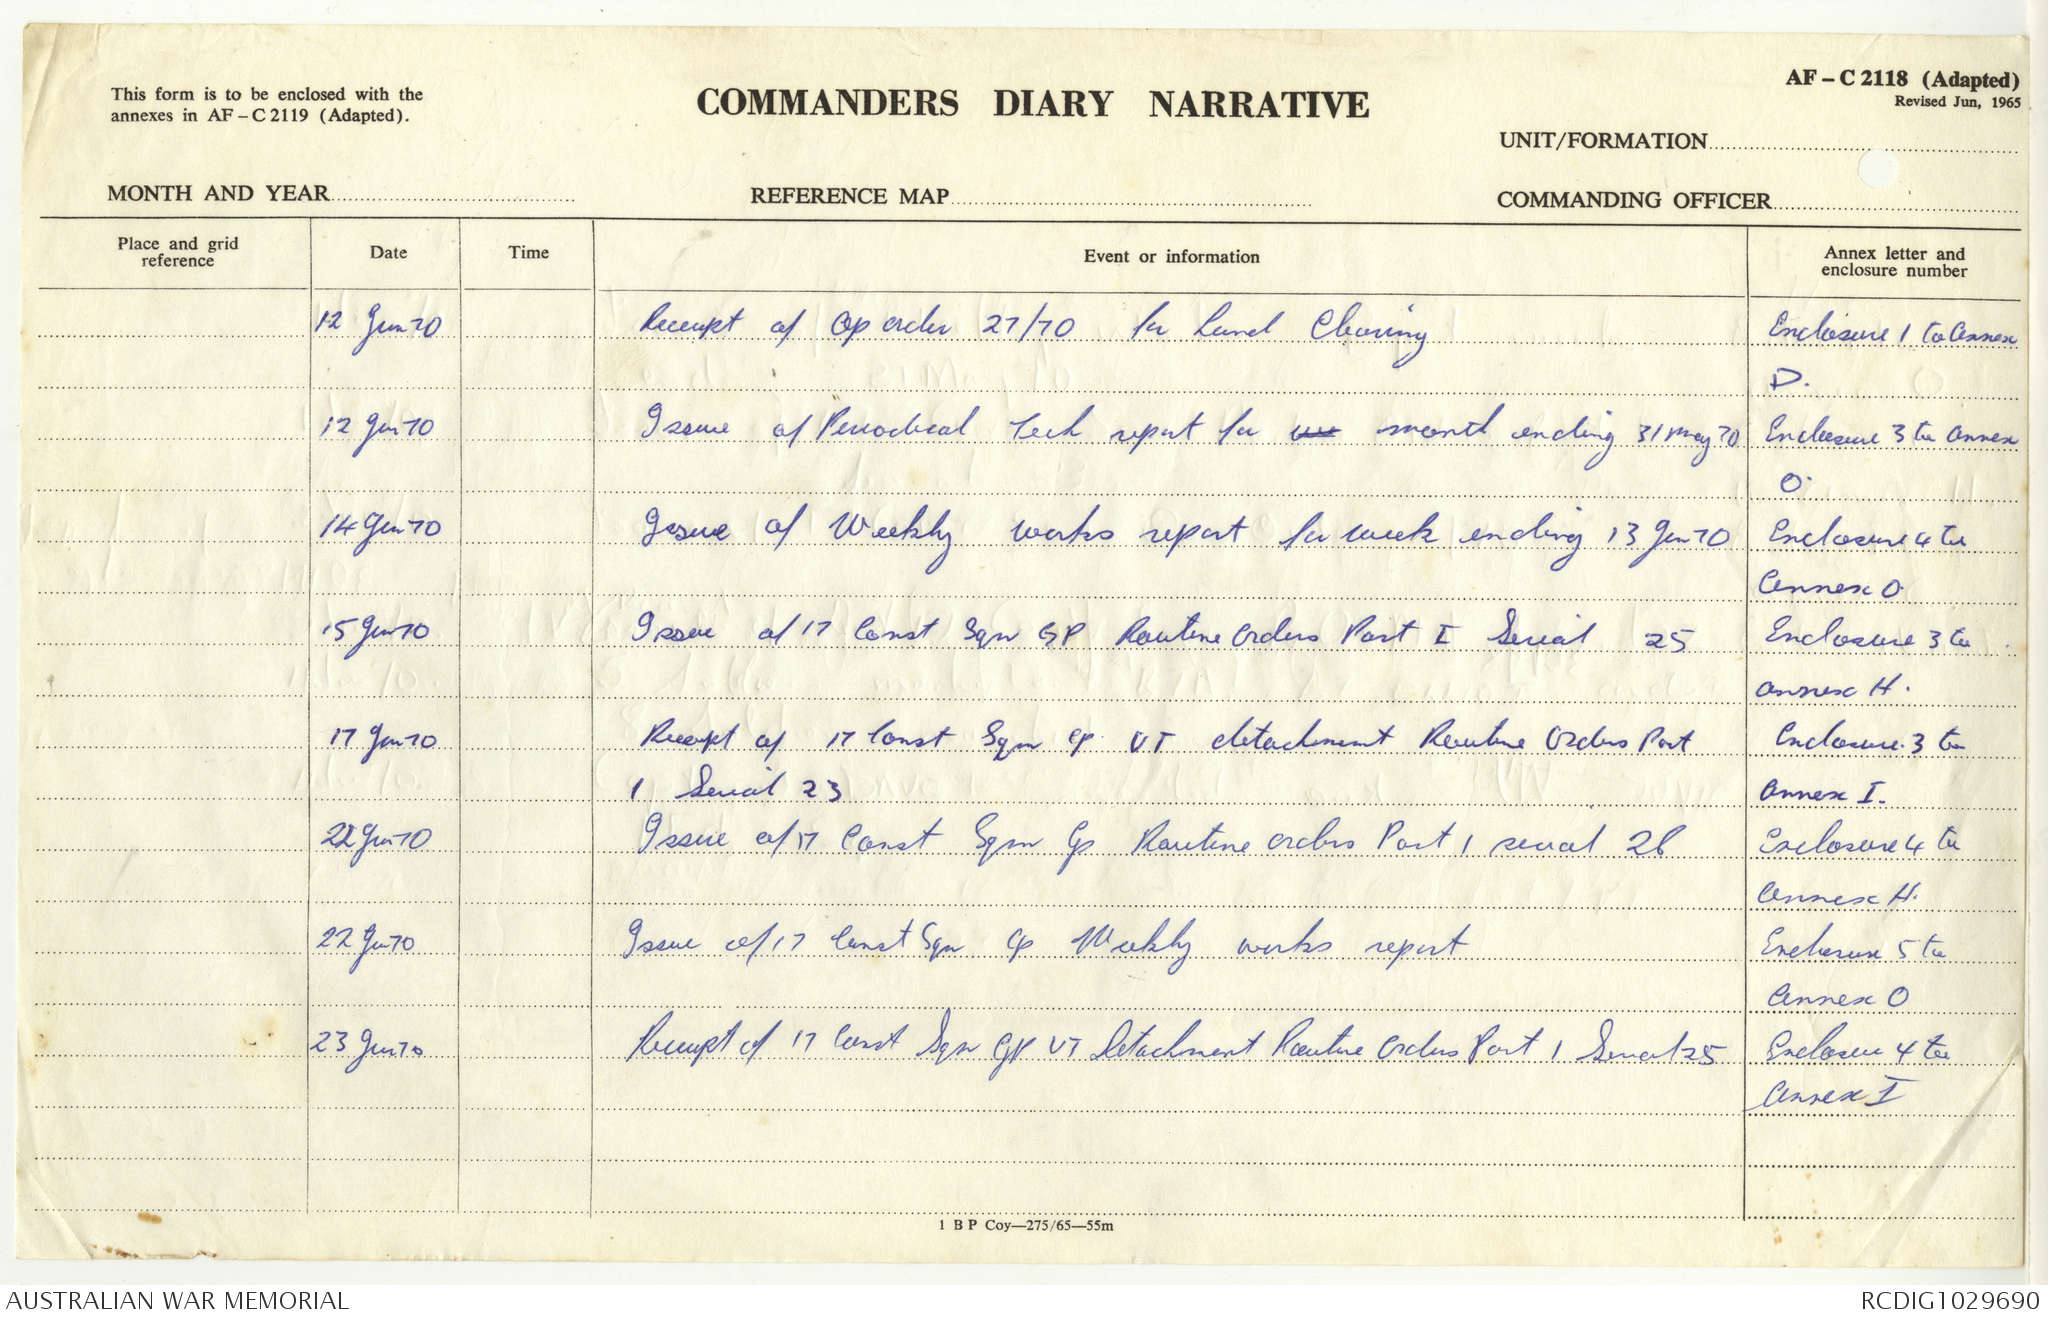 This form is to be enclosed with the
annexes in AF – C 2119 (Adapted).
COMMANDERS DIARY NARRATIVE
AF – C 2118 (Adapted)
Revised Jun, 1965
UNIT/FORMATION
MONTH AND YEAR
REFERENCE MAP
COMMANDING OFFICER
Place and grid reference Date Time Event or information Annex letter and enclosure number
12 Jun 70 Receipt of Op order 27/70 for Land Clearing Enclosure 1 to Annex
D.
12 Jun 70 Issue of Periodical Tech report for month ending 31 May 70 Enclosure 3 to Annex
O.
14 Jun 70 Issue of Weekly works report for week ending 13 Jun 70 Enclosure 4 to
Annex O.
15 Jun 70 Issue of 17 Const Sqn GP Routine Orders Part I Serial 25 Enclosure 3 to
Annex H.
17 Jun 70 Receipt of 17 Const Sqn Gp VT detachment Routine Orders Part Enclosure 3 to
1 Serial 23 Annex I.
22 Jun 70 Issue of 17 Const Sqn Gp Routine Orders Part 1 serial 26 Enclosure 4 to
Annex H.
22 Jun 70 Issue of 17 Const Sqn Gp Weekly works report Enclosure 5 to
Annex O
23 Jun 70 Receipt of 17 Const Sqn GP VT Detachment Routine Orders Part 1 Serial 25 Enclosure 4 to
Annex I
1 B P Coy—275/65—55m
AUSTRALIAN WAR MEMORIAL
RCDIG1029690